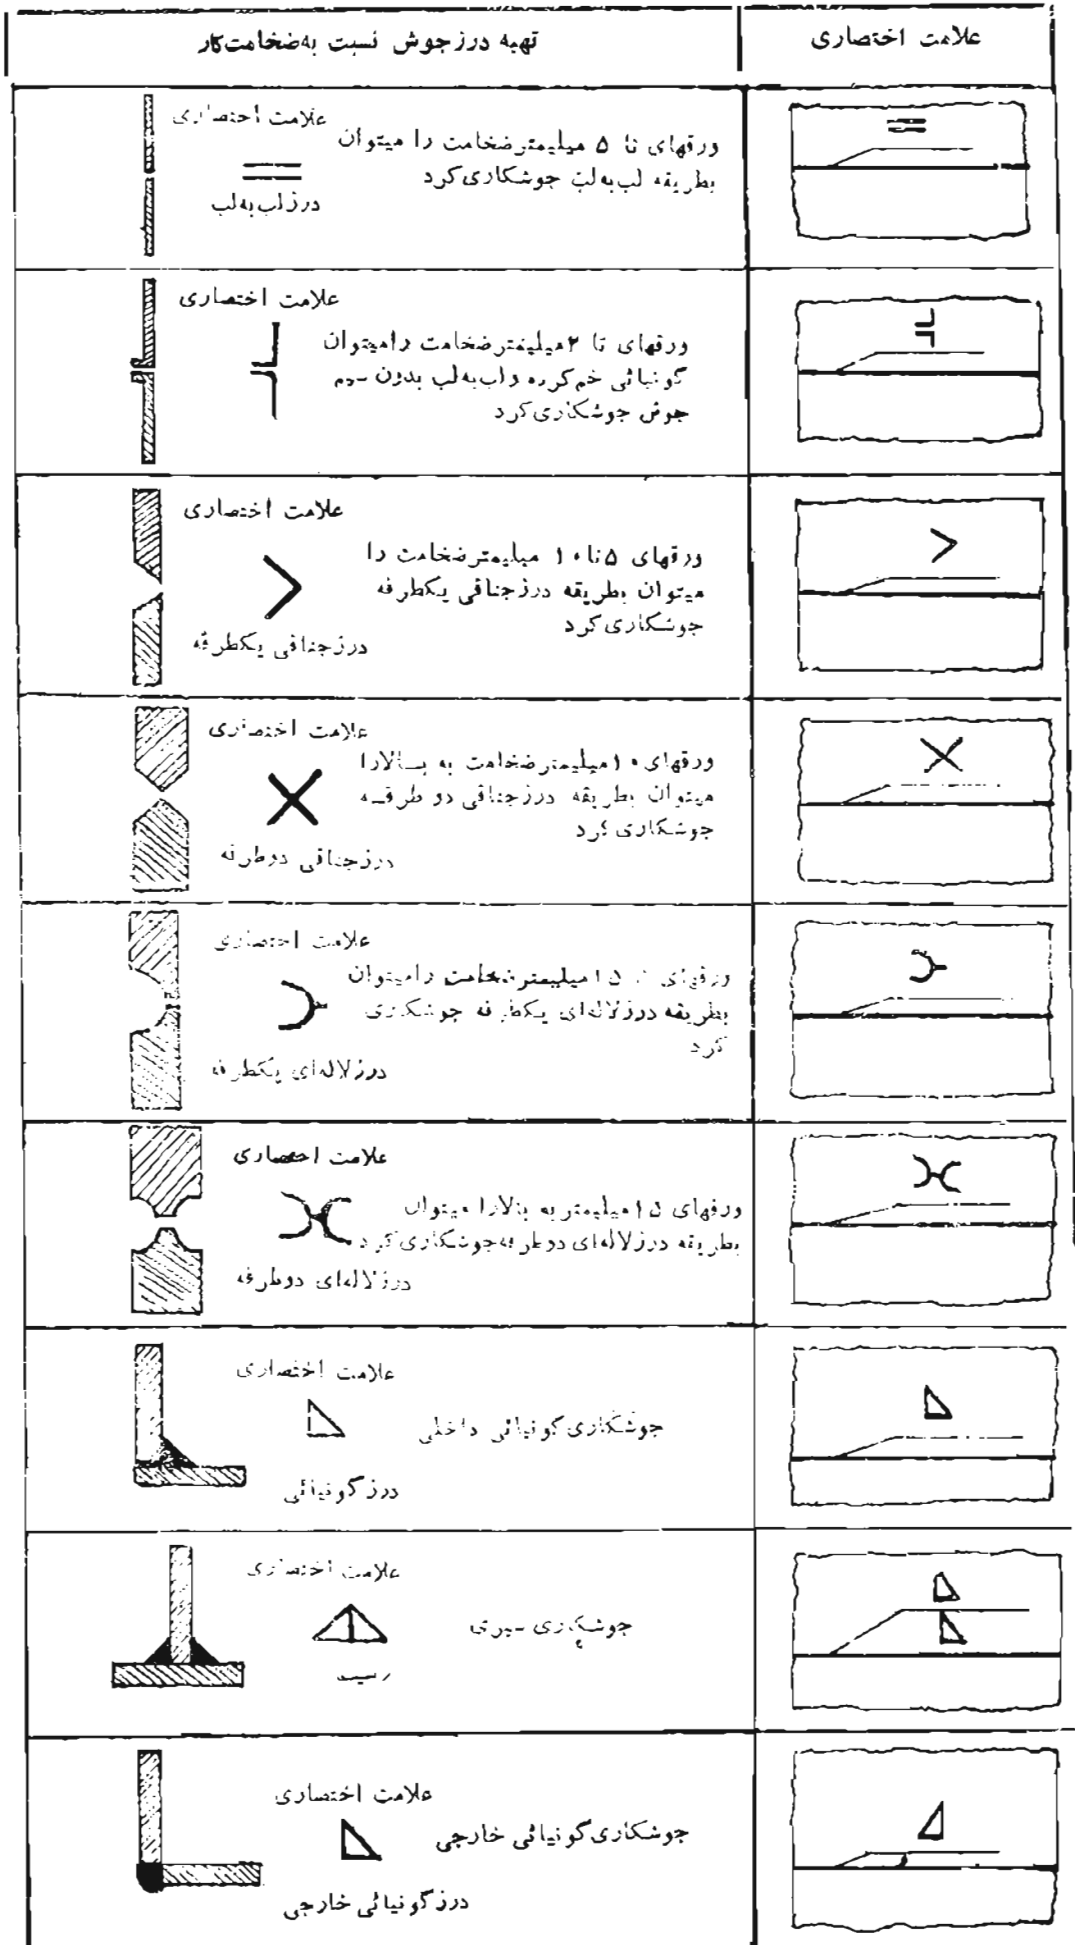 علامت اختصاری
تهیه درزجوش نسبت به‌ضخامت‌کار
ورقهای تا ۵ میلیمترضخامت را میتوان
بطریقه لب‌به‌لب جوشکاری‌کرد
علامت اختصاری
درزلب‌به‌لب
ورقهای تا ۲میلیمترضخامت رامیتوان
گونیائی خم‌کرده ولب‌به‌لب بدون سیم
جوش جوشکاری‌کرد
علامت اختصاری
ورقهای ۵تا۱۰ میلیمترضخامت را
میتوان بطریقه درزجناقی یکطرفه
جوشکاری‌کرد
علامت اختصاری
درزجناقی یکطرفه
ورقهای۱۰میلیمترضخامت به بالارا
میتوان بطریقه درزجناقی دو طرفه
جوشکاری کرد
علامت اختصاری
درزجناقی دوطرفه
ورقهای تا ۱۵میلیمترضخامت رامیتوان
بطریقه درزلاله‌ای یکطرفه جوشکاری
کرد
علامت اختصاری
درزلاله‌ای یکطرفه
ورقهای ۱۵میلیمتر به بالارا میتوان
بطریقه درزلاله‌ای دوطرفه‌جوشکاری‌کرد
علامت اختصاری
درزلاله‌ای دوطرفه
جوشکاری‌گونیائی داخلی
علامت اختصاری
درزگونیائی
جوشکاری سپری
علامت اختصاری
جوشکاری‌گونیائی خارجی
علامت اختصاری
درزگونیائی خارجی